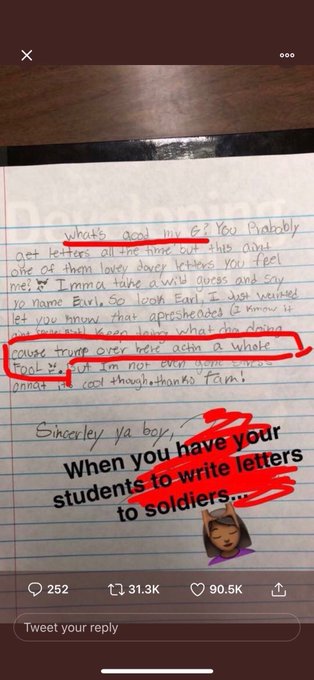 what's good my G? You Probably
get letters all the time but this aint
one of them lovey dovey letters you feel
me? Imma take a wild guess and say
yo name Earl. So look Earl, I Just wanted
let you know that apresheaded (I know it
Keep doing what cha doing
cause trump over here actin a whole
FOOL. But Im not even gone
onnat it cool though. thanks Fam!
Sincerley ya boy,
When you have your
students to write letters
to soldiers...
252
31.3K
90.5K
Tweet your reply